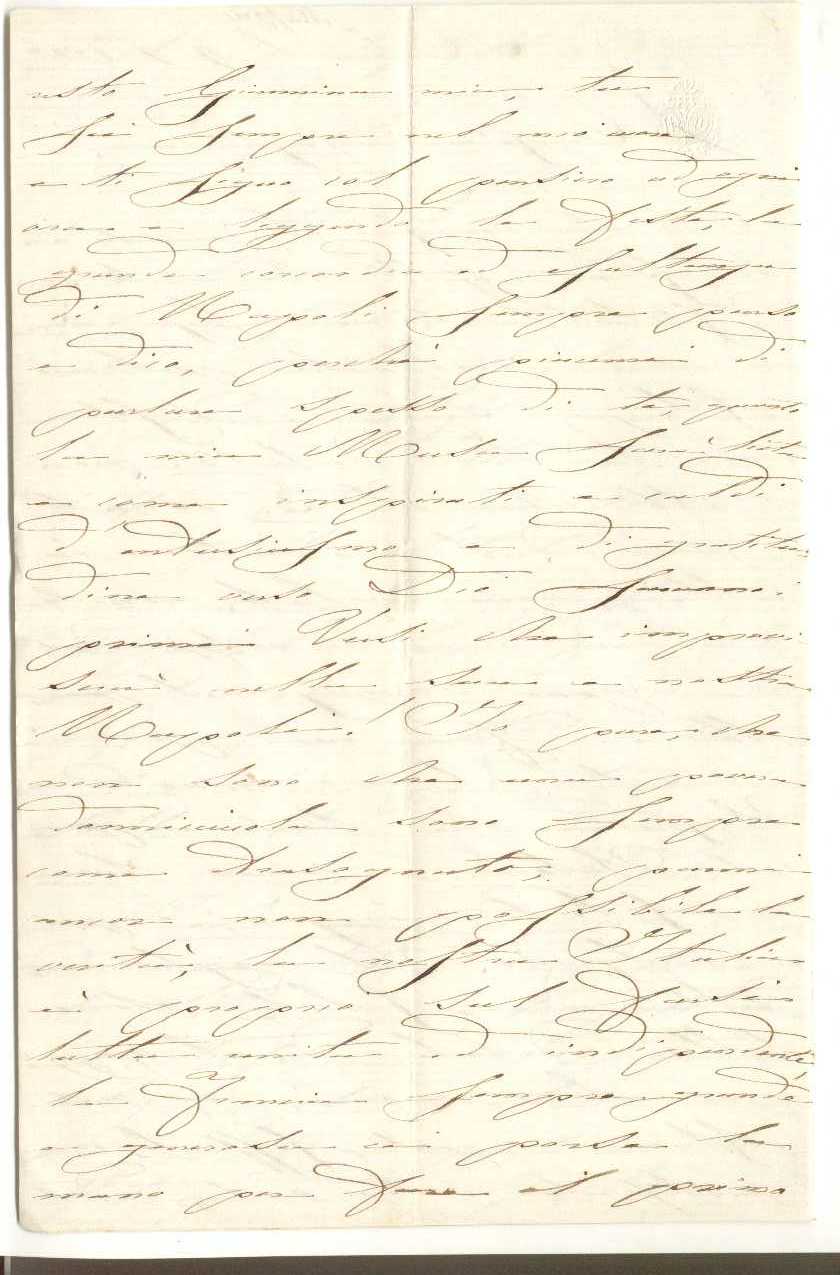 esto Giannina mia, tu
sei sempre nel mio cuore
e ti seguo col pensiero ad ogni
ora e leggendo le feste, la
grande concordia ed esultanza
di Napoli sempre penso
e dico, perché piacemi di
parlare spesso di te, quanto
la mia Musa sarà lieta
e come inspirati e caldi
d'entusiasmo e di gratitu-
dine verso Dio saranno i
primi Versi che improvi
serà nella sua e nostra
Napoli! Io pure, che
non sono che una povera
donnicciuola sono sempre
come trasognata, parmi
ancor non possibile la
verità, la nostra Italia
è proprio sul farsi
tutta unita ed indipendente,
la Francia sempre grande
e generosa ci porse la
mano per fare il primo